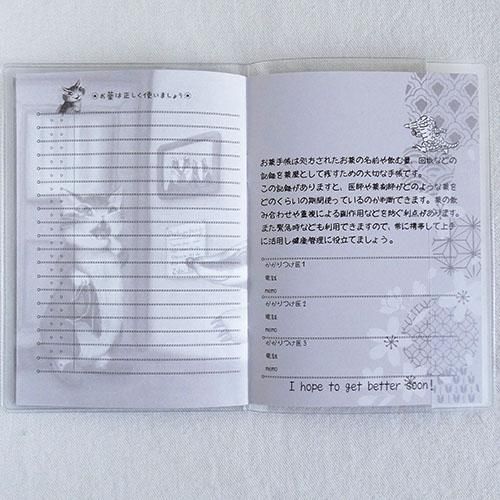 お薬は正しく使いましょう
お薬手帳は処方されたお薬の名前や飲む量、回数などの
記録を薬歴として残すための大切な手帳です。
この記録がありますと、医師や薬剤師がどのような薬を
どのくらいの期間使っているのか判断できます。薬の飲
み合わせや重複による副作用などを防ぐ利点があります。
また緊急時なども利用できますので、常に携帯して上手
に活用し健康管理に役立てましょう。
かかりつけ医1
電話
memo
かかりつけ医2
電話
memo
かかりつけ医3
電話
memo
I hope to get better soon!